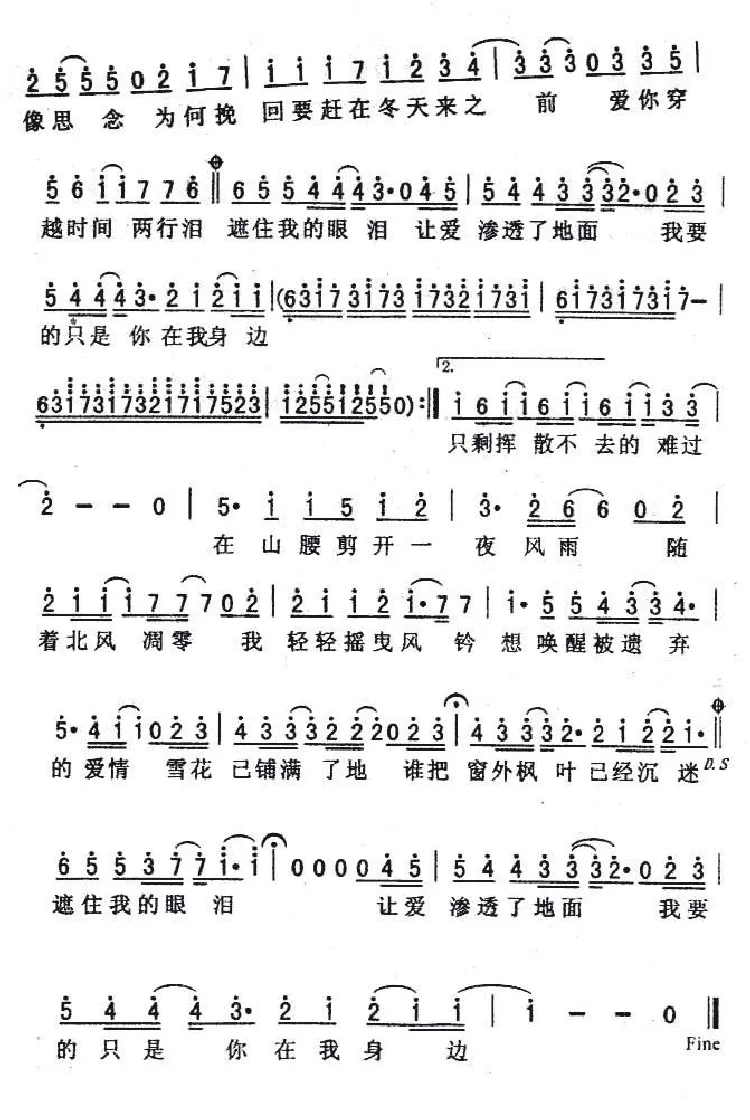 2 5 5 5 0 2 1 7 | 1 1 1 7 1 2 3 4 | 3 3 3 0 3 3 5 |
像思 念 为何挽 回要赶在冬天来之 前 爱你穿
5 6 1 1 7 7 6 || 6 5 5 4 4 4 3· 0 4 5 | 5 4 4 3 3 3 2· 0 2 3 |
越时间 两行泪 遮住我的眼 泪 让爱 渗透了地面 我要
5 4 4 4 3· 2 1 2 1 1 | (6317317317321731 | 617317317317– |
的只是 你在我身 边
2.
只剩挥 散不 去的 难过
2 – – 0 | 5· 1 1 5 1 2 | 3· 2 6 6 0 2 |
在山腰剪开一 夜风雨 随
2 1 1 1 7 7 7 0 2 | 2 1 1 2 1· 7 7 | 1· 5 5 4 3 3 4· |
着北风 凋零 我 轻轻摇曳风 铃 想唤醒被遗弃
5· 4 1 1 0 2 3 | 4 3 3 3 2 2 2 0 2 3 | 4 3 3 3 2· 2 1 2 2 1· ||
的爱情 雪花已铺满 了地 谁把 窗外枫 叶已经沉 迷 D.S
6 5 5 3 7 7 1· 1 | 0 0 0 0 4 5 | 5 4 4 3 3 3 2· 0 2 3 |
遮住我的眼 泪 让爱 渗透了地面 我要
5 4 4 4 3· 2 1 2 1 1 | 1 – – 0 ||
的只是 你在我身 边
Fine